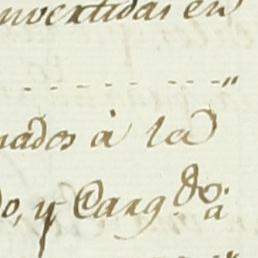 nvertidas en
- - - - - - - - - "
nados à la
do, y Carg.do à